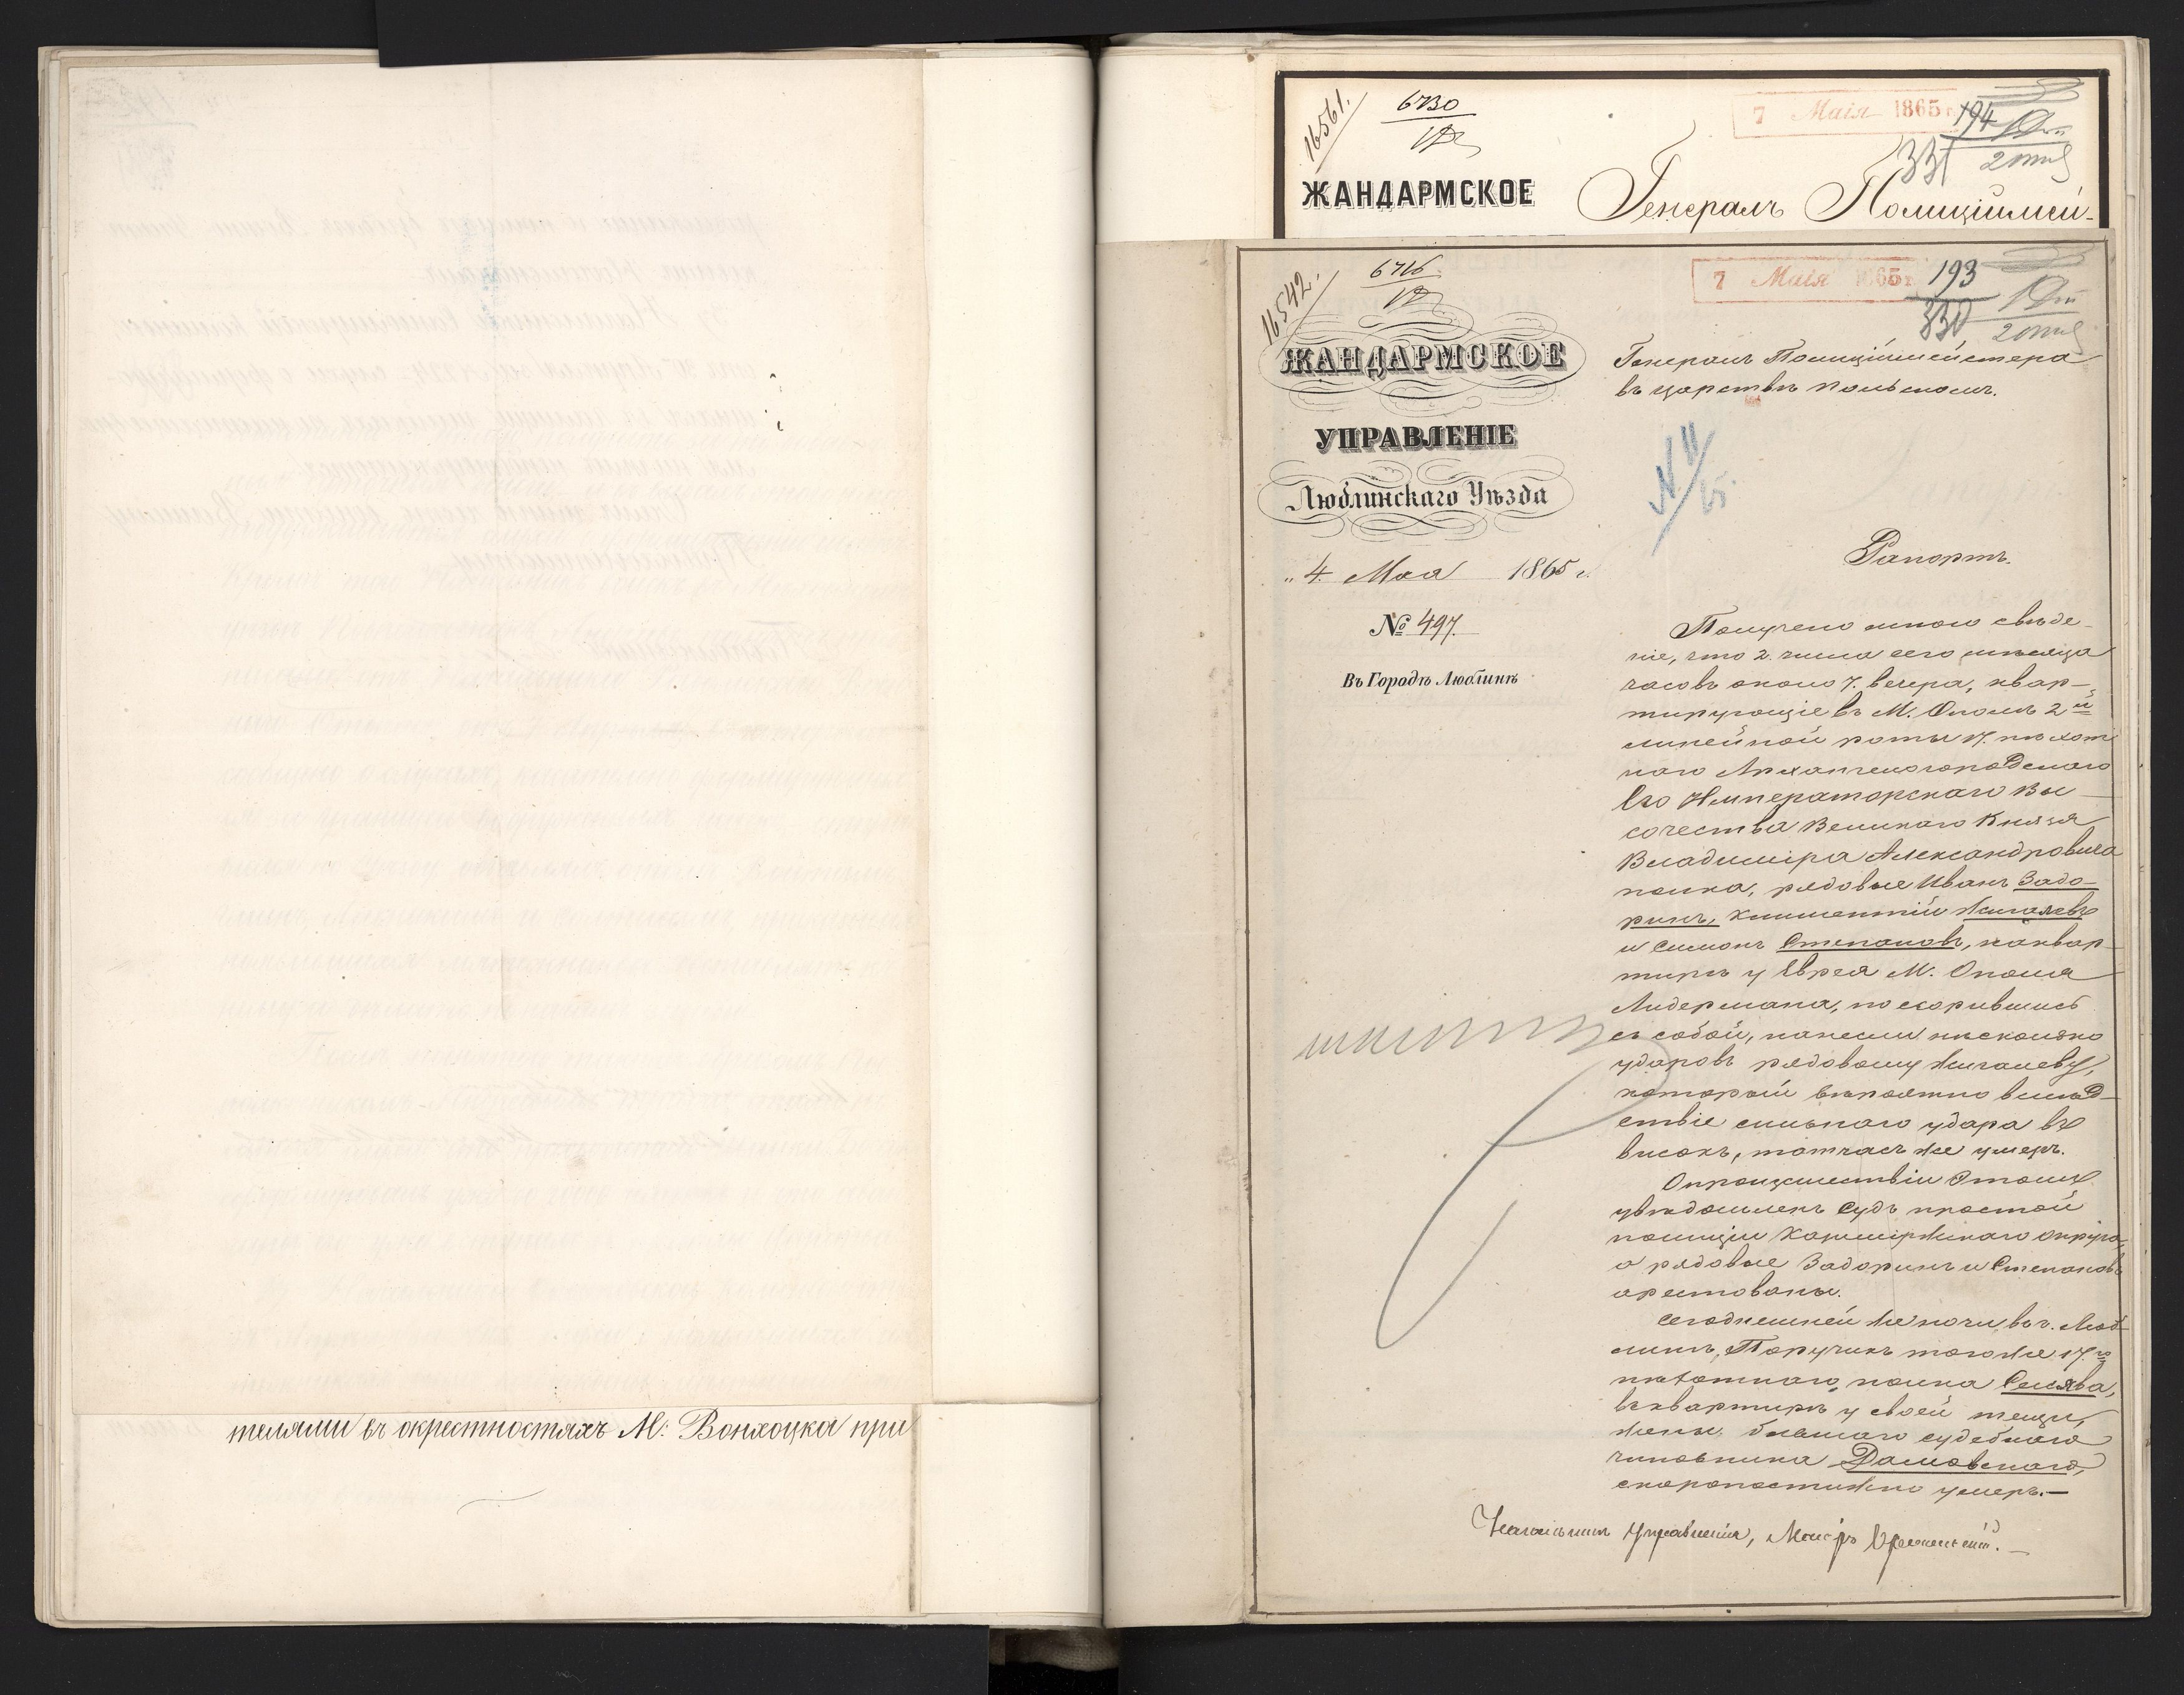 телями въ окрестностяхъ М. Вонхоцка при
16561.
6730
7 Маія 1865 г.
194
331
ЖАНДАРМСКОЕ
Генералъ Полиціймей-
16542.
6716
7 Маія 1865 г.
193
330
ЖАНДАРМСКОЕ
УПРАВЛЕНІЕ
Люблинскаго Уѣзда
„4. Мая 1865 г.
№ 497.
Въ Городѣ Люблинѣ
Генералъ Полиціймейстера
въ царствѣ польскомъ.
Рапортъ.
Получено мною свѣде-
ніе, что 2. числа сего мѣсяца
часовъ около 7. вечера, квар-
тирующіе въ М. Ополѣ 2й
линейной роты 17. пѣхот
наго Архангелогородскаго
Его Императорскаго Вы-
сочества Великаго Князя
Владиміра Александровича
полка, рядовые Иванъ Задо-
ринъ, Климентій Жигалевъ
и Симонъ Степановъ, наквар-
тирѣ у Еврея М. Ополя
Лидермана, поссорившись
съ собой, нанесли нѣсколько
ударовъ рядовому Жигалеву,
который вѣроятно вслѣд-
ствіе сильнаго удара въ
високъ, тотчасъ же умеръ.
О происшествіи этомъ
увѣдомленъ Судъ простой
полиціи Казимержскаго округа,
а рядовые Задоринъ и Степановъ
арестованы.
Сегоднешней же ночи, въ г. Люб-
линѣ, Поручикъ тогоже 17.го
пѣхотнаго полка Селява,
въ квартирѣ у своей тещи,
жены бывшаго судебнаго
чиновника Домовскаго,
скоропостижно умеръ.—
Начальникъ Управленія, Маіоръ